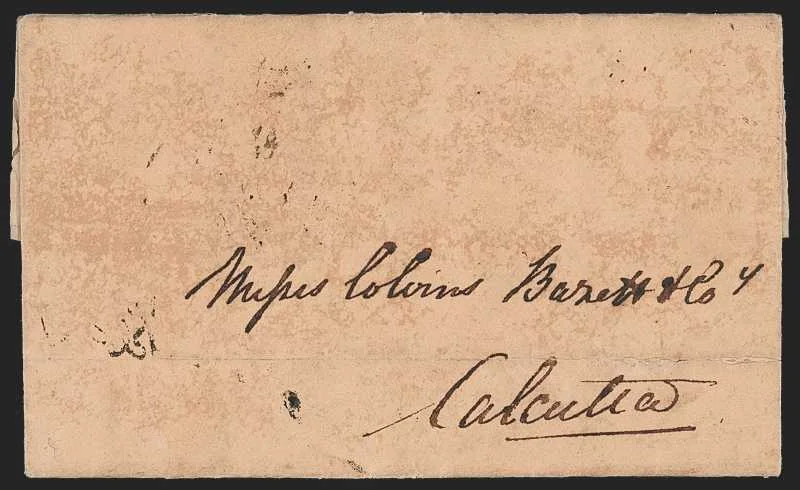 Messrs Colvins Bazett & Co y
Calcutta